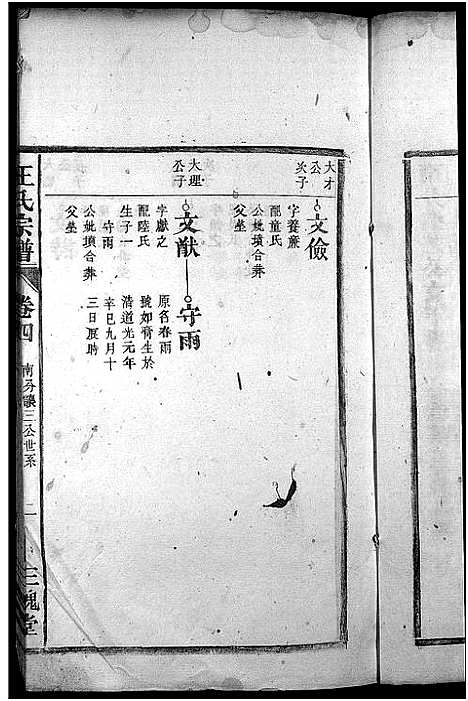 大才
公
次子
文儉
字養廉
配童氏
公妣項合葬
父塋
大理
公子
文猷
守雨
字獻之
配陸氏
生子一
守雨
公妣項合葬
父塋
原名春雨
號如膏生於
清道光元年
辛巳九月十
三日辰時
王氏宗譜
卷四
南分
三公世系
二
三槐堂